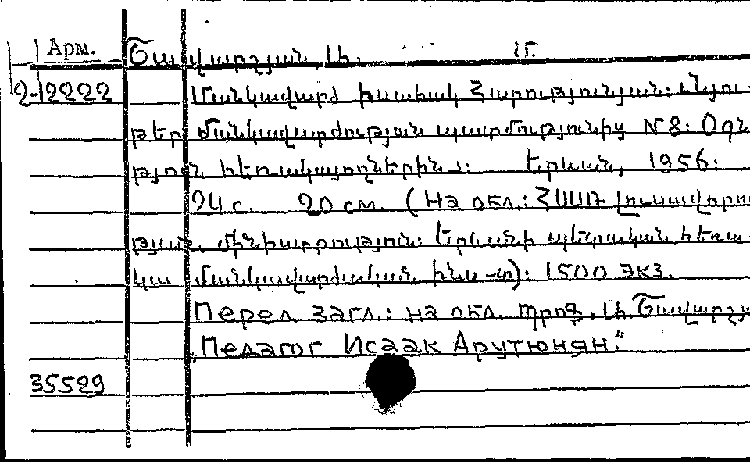 Арм. Շավարշյան Լի.
2-12222 Մանկավարժ Իսահակ Հարությունյան: Նյու-
թեր մանկավարժության պատմությունից № 8: Օգն
թյուն հեռակայողներին: Երևան, 1956:
24 с. 20 см. (На обл.: ՀՍՍՌ լուսավորու
թյան մինիստրություն: Երևանի պետական հեռա-
կա մանկավարժական ինս-տ): 1500 экз.
Перед загл.: на обл. պրոֆ. Լի Շավարշյ
„Педагог Исаак Арутюнян."
35599